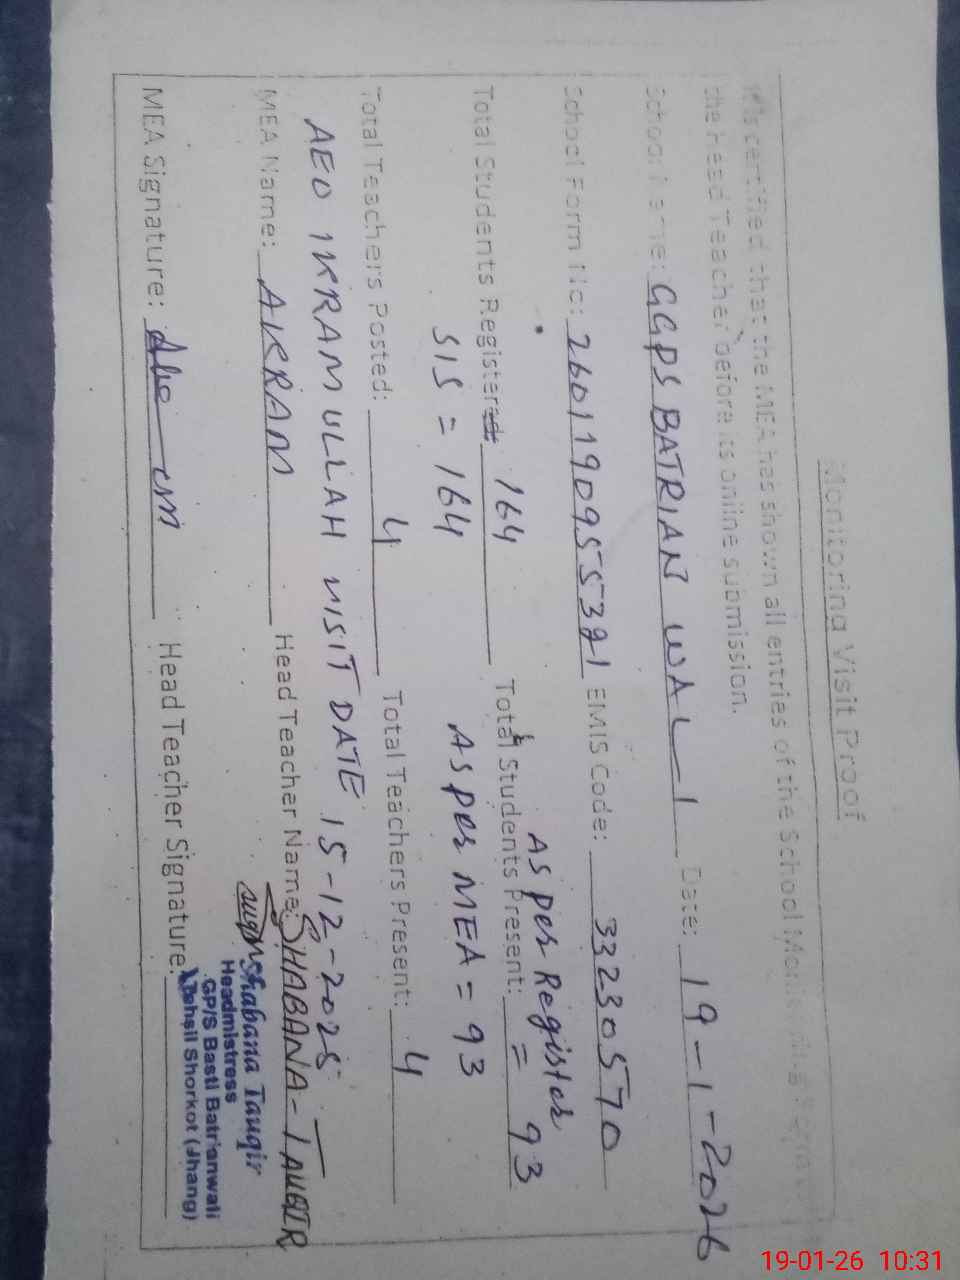 Monitoring Visit Proof
It is certified that the MEA has shown all entries of the School
the head Teacher before its online submission.
School Name: GGPS BATRIAN WAL 1 Date: 19-1-2026
School Form No: 26011909553 21 EMIS Code: 33230570
As per Register
Total Students Registered 164 Total Students Present: = 93
SIS = 164 As per MEA = 93
Total Teachers Posted: 4 Total Teachers Present: 4
AEO IKRAM ULLAH VISIT DATE 15-12-2025
MEA Name: AKRAM Head Teacher Name: SHABANA-TAUQIR
MEA Signature: Head Teacher Signature:
Shabana Tauqir
Headmistress
GP/S Basti Batrianwali
Tehsil Shorkot (Jhang)
19-01-26 10:31